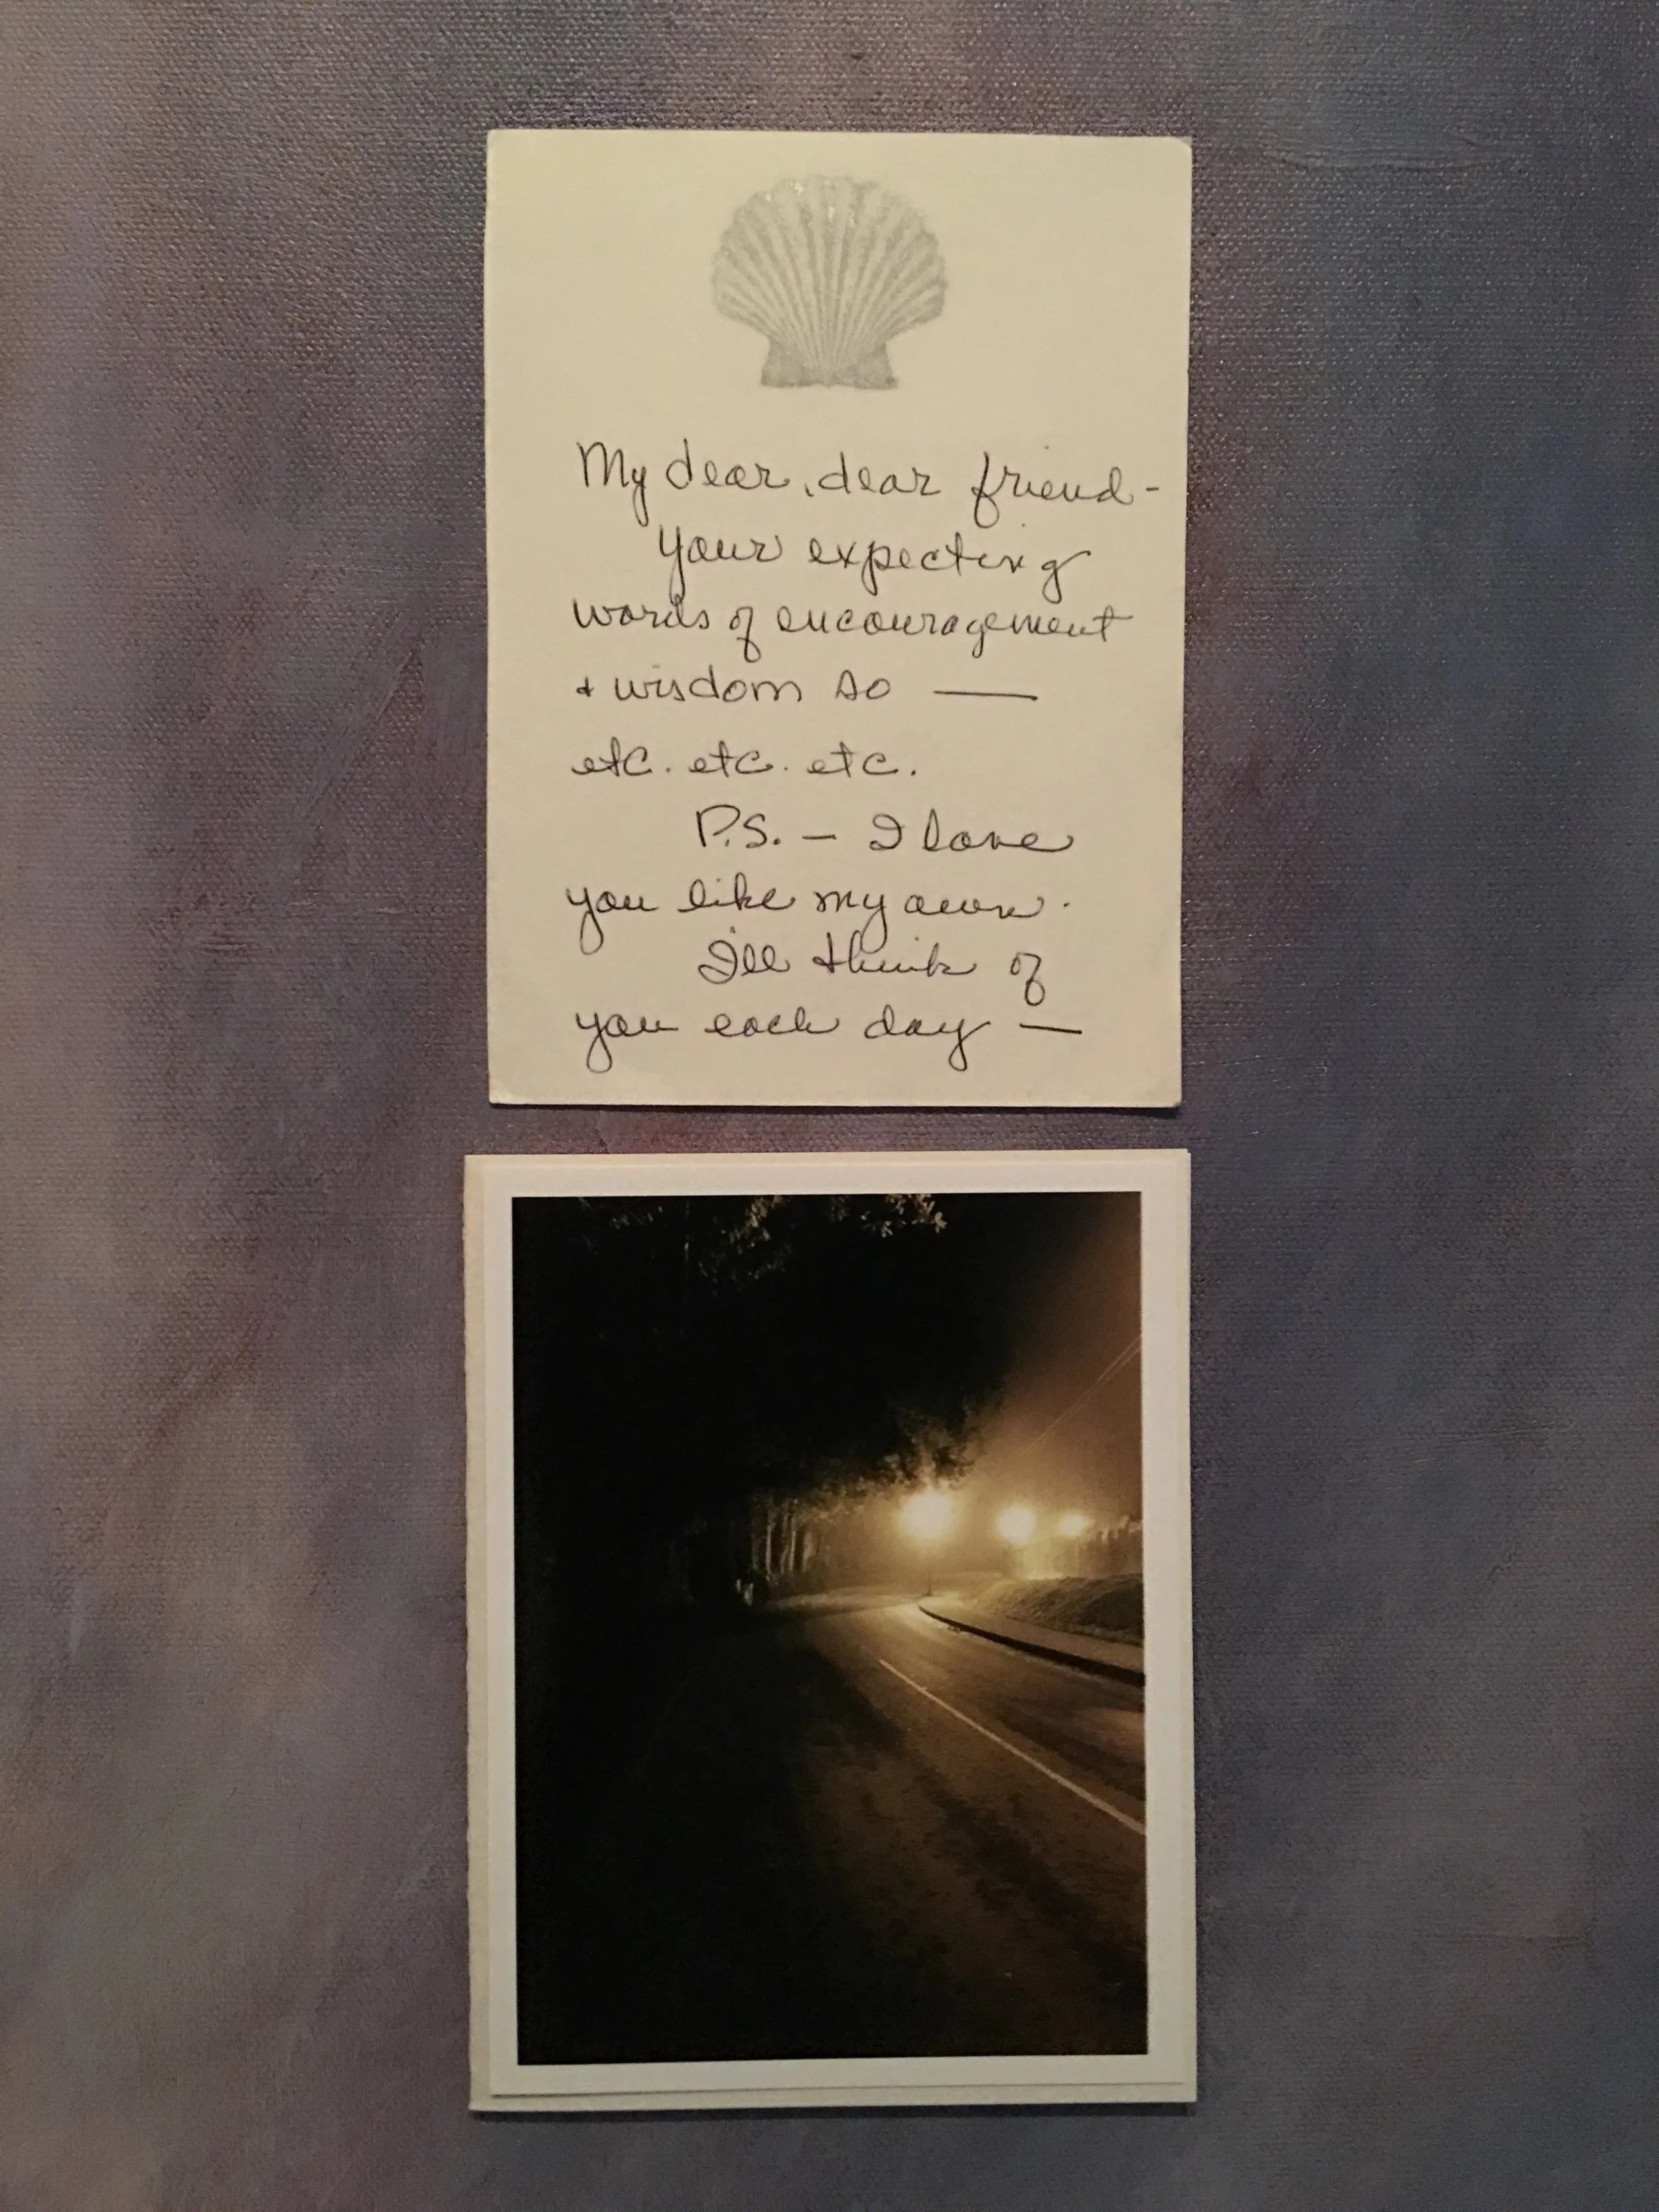 My dear, dear friend -
Your expecting
words of encouragement
+ wisdom so —
etc. etc. etc.
P.S. — I love
you like my own.
I'll think of
you each day —